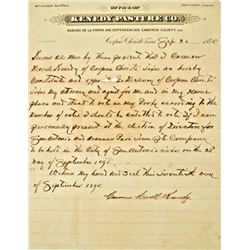 OFFICE OF
KENEDY PASTURE CO.
RANCHO DE LA PARRA AND DEPENDENCIES CAMERON COUNTY, TEX.
Corpus Christi, Texas Sep 20 1895
Know all men by these presents that I Carmen
of Corpus Christi Texas do hereby
Constitute and of Corpus Christi
Texas my attorney and agent for me and in my name
place and stead to vote as my Proxy according to the
number of votes I should be entitled to vote if I were
personally present at the election of Directors for
San Antonio and Aransas Pass Railway Company
to be held in the City of San Antonio Texas on the
day of September 1895.
Witness my hand and Seal this Twentieth day
of September 1895.
Carmen Morell Kenedy